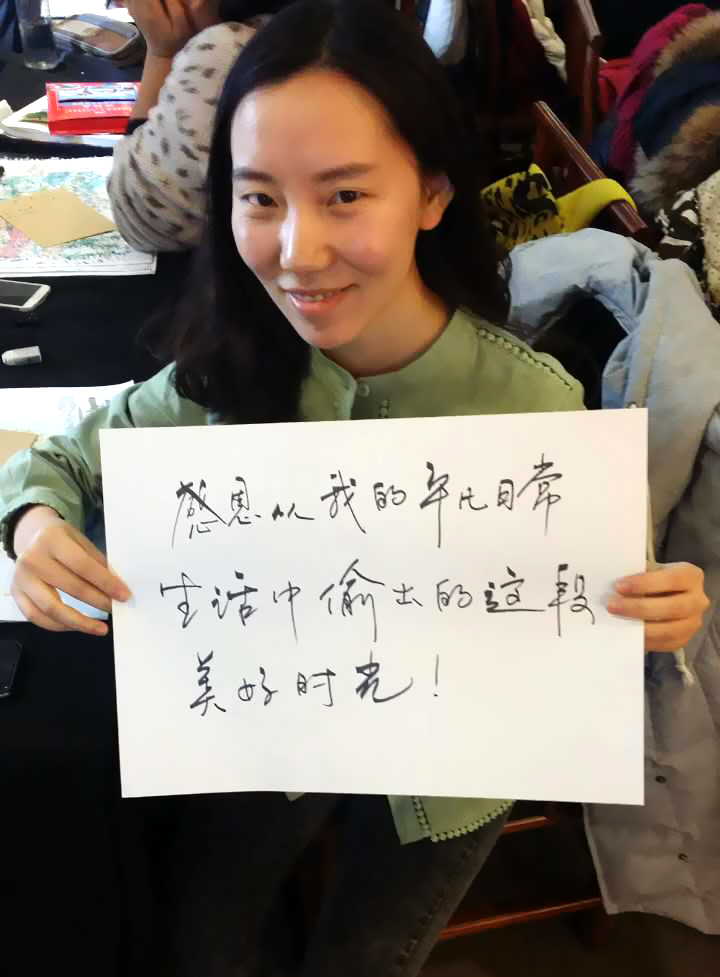 感恩从我的平凡日常
生活中偷出的这段
美好时光！